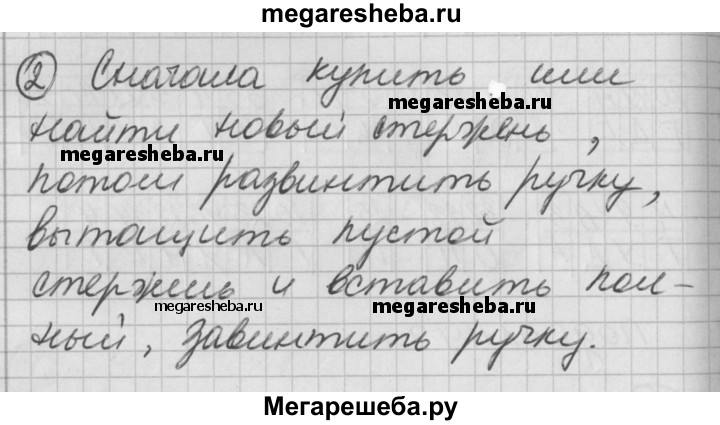 megaresheba.ru
② Сначала купить или
megaresheba.ru
найти новый стержень,
megaresheba.ru
потом развинтить ручку,
вытащить пустой
стержень и вставить пол-
megaresheba.ru
megaresheba.ru
ный, завинтить ручку.
Мегарешеба.ру